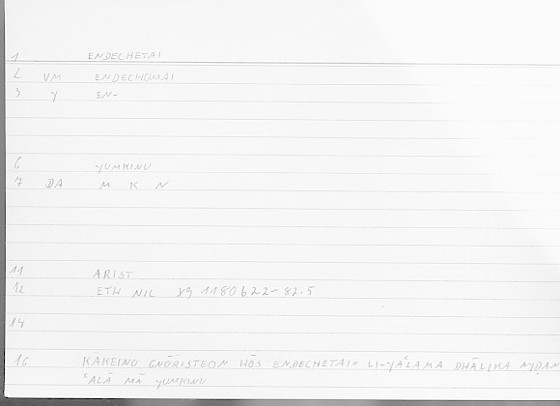 1 ENDECHETAI
2 VM ENDECHOMAI
3 Y EN-
6 YUMKINU
7 DA M K N
11 ARIST
12 ETH NIC 89 1180b22-82.5
14
16 KAKEINO GNŌRISTEON HŌS ENDECHETAI= LI-YAʿLAMA DHĀLIKA AYḌAN
ʿALĀ MĀ YUMKINU